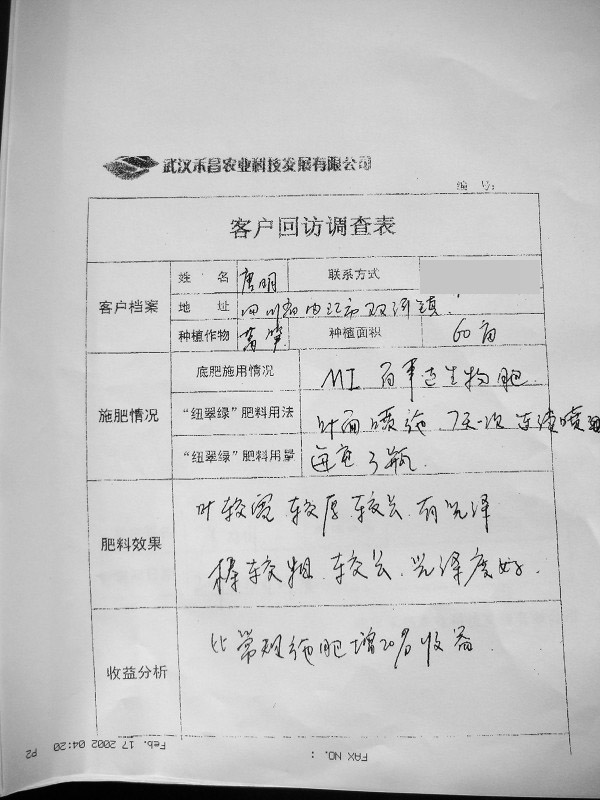 武汉禾昌农业科技发展有限公司
编 号:
客户回访调查表
客户档案
姓 名 唐明 联系方式
地 址 四川省内江市双河镇
种植作物 莴笋 种植面积 60亩
施肥情况
底肥施用情况 生物肥
“纽翠绿”肥料用法 叶面喷施 7天一次 连续喷
“纽翠绿”肥料用量 每亩3瓶
肥料效果
叶较宽 较厚 较长 有光泽
棒较粗、较长、光泽度好.
收益分析
比常规施肥增20%收益
FAX NO. :
Feb. 17 2002 04:20 P2